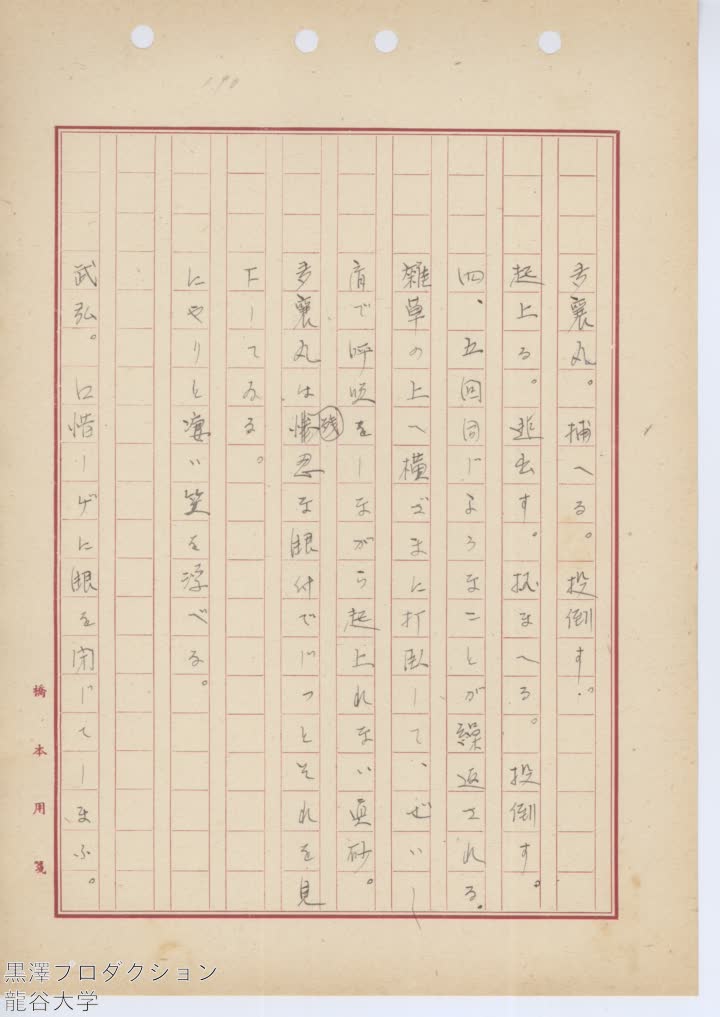 多襄丸。捕へる。投倒す。
起上る。逃出す。捉まへる。投倒す。
四、五回同じようなことが繰返される。
雑草の上へ横ざまに打臥して、ぜい〱
肩で呼吸をしながら起上れない眞砂。
多襄丸は残忍な眼付でじっとそれを見
下してゐる。
にやりと凄い笑を浮べる。
武弘。口惜しげに眼を閉じてしまふ。
橋本用箋
黒澤プロダクション
龍谷大学